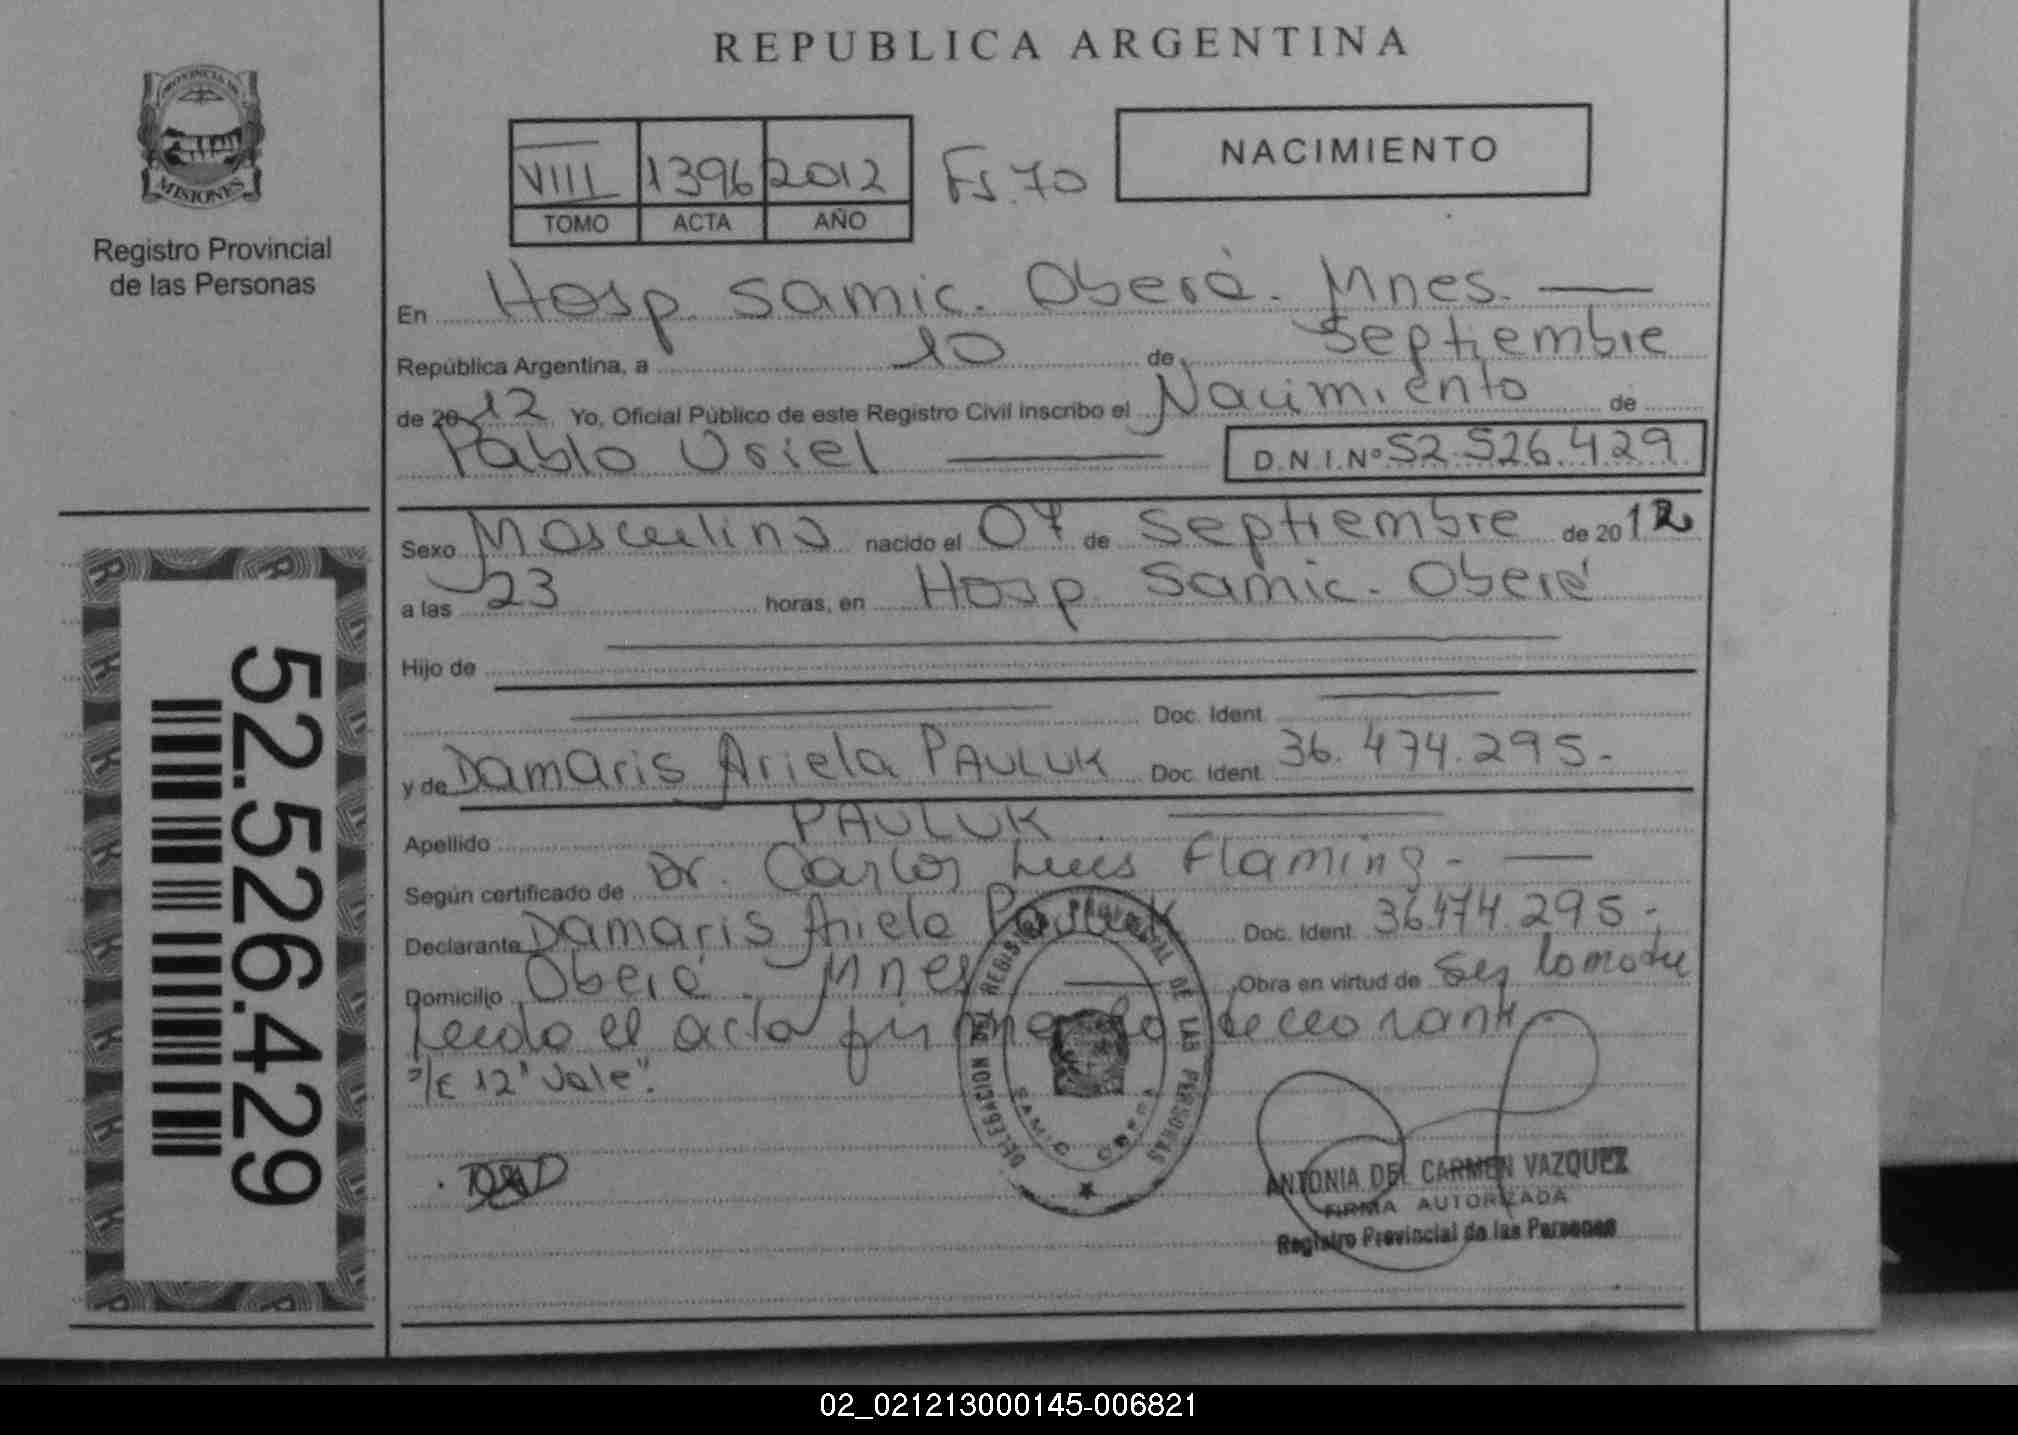 REPUBLICA ARGENTINA
PROVINCIA DE
MISIONES
Registro Provincial
de las Personas
VIII 1396 2012 Fs. 70
TOMO ACTA AÑO
NACIMIENTO
En Hosp. Samic. Oberá. Mnes.
República Argentina, a 10 de Septiembre
de 2012 Yo, Oficial Público de este Registro Civil inscribo el Nacimiento de
Pablo Uriel D.N.I.Nº 52.526.429
Sexo Masculino nacido el 07 de Septiembre de 2012
a las 23 horas, en Hosp. Samic. Oberá
Hijo de
Doc. Ident.
y de Damaris Ariela PAULUK Doc. Ident. 36.474.295.-
Apellido PAULUK
Según certificado de Dr. Carlos Luis Flaming.-
Declarante Damaris Ariela Pauluk Doc. Ident. 36.474.295.-
Domicilio Oberá. Mnes Obra en virtud de ser la madre
Leida el acta firma la declarante.
s/e 12 "Vale".
DELEGACION REGISTRO PROVINCIAL DE LAS PERSONAS
SAMIC OBERA
ANTONIA DEL CARMEN VAZQUEZ
FIRMA AUTORIZADA
Registro Provincial de las Personas
52.526.429
02_021213000145-006821